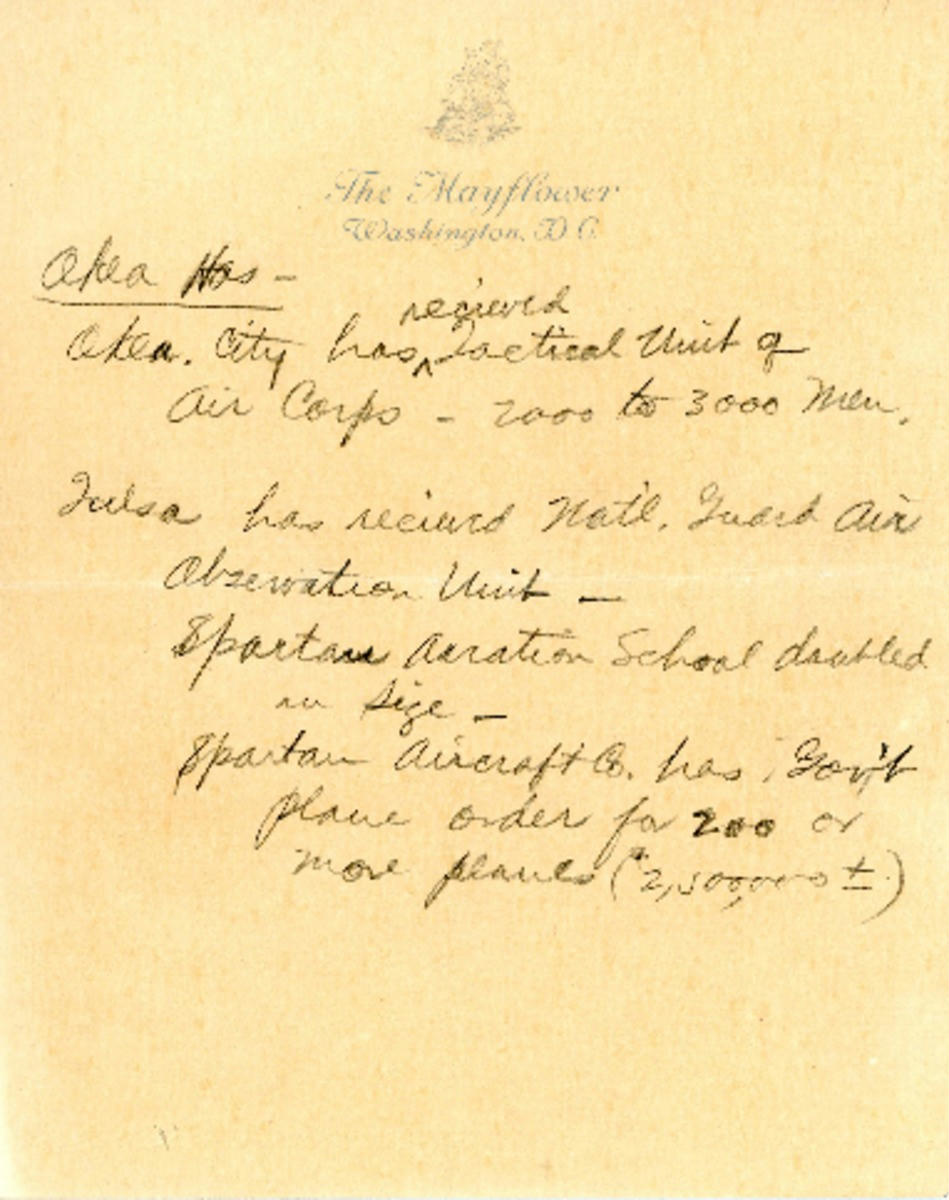 The Mayflower
Washington, D.C.
Okla Has -
recieved
Okla. City has ^ Tactical Unit of
Air Corps - 2000 to 3000 Men.
Tulsa has recieved Nat'l. Guard Air
Observation Unit -
Spartan Aviation School doubled
in size -
Spartan Aircraft Co. has Gov't
plane order for 200 or
more planes ($2,500,000 ±)